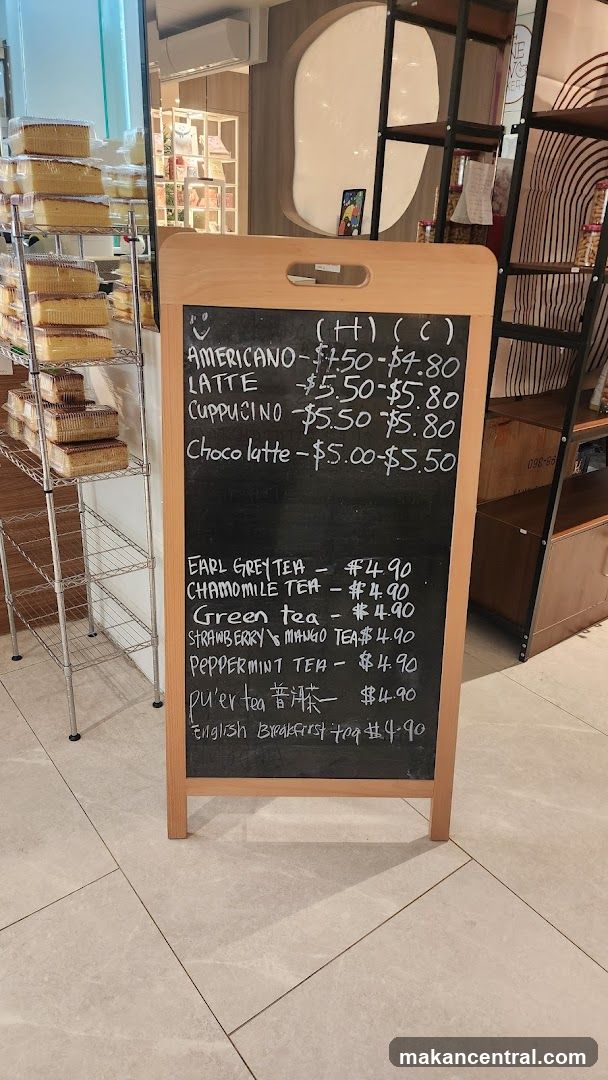 (H) (C)
AMERICANO - $4.50 - $4.80
LATTE - $5.50 - $5.80
CUPPUCINO - $5.50 - $5.80
Chocolatte - $5.00 - $5.50
EARL GREY TEA - $4.90
CHAMOMILE TEA - $4.90
Green tea - $4.90
STRAWBERRY & MANGO TEA $4.90
PEPPERMINT TEA - $4.90
pu'er tea 普洱茶 - $4.90
English Breakfirst tea $4.90
makancentral.com